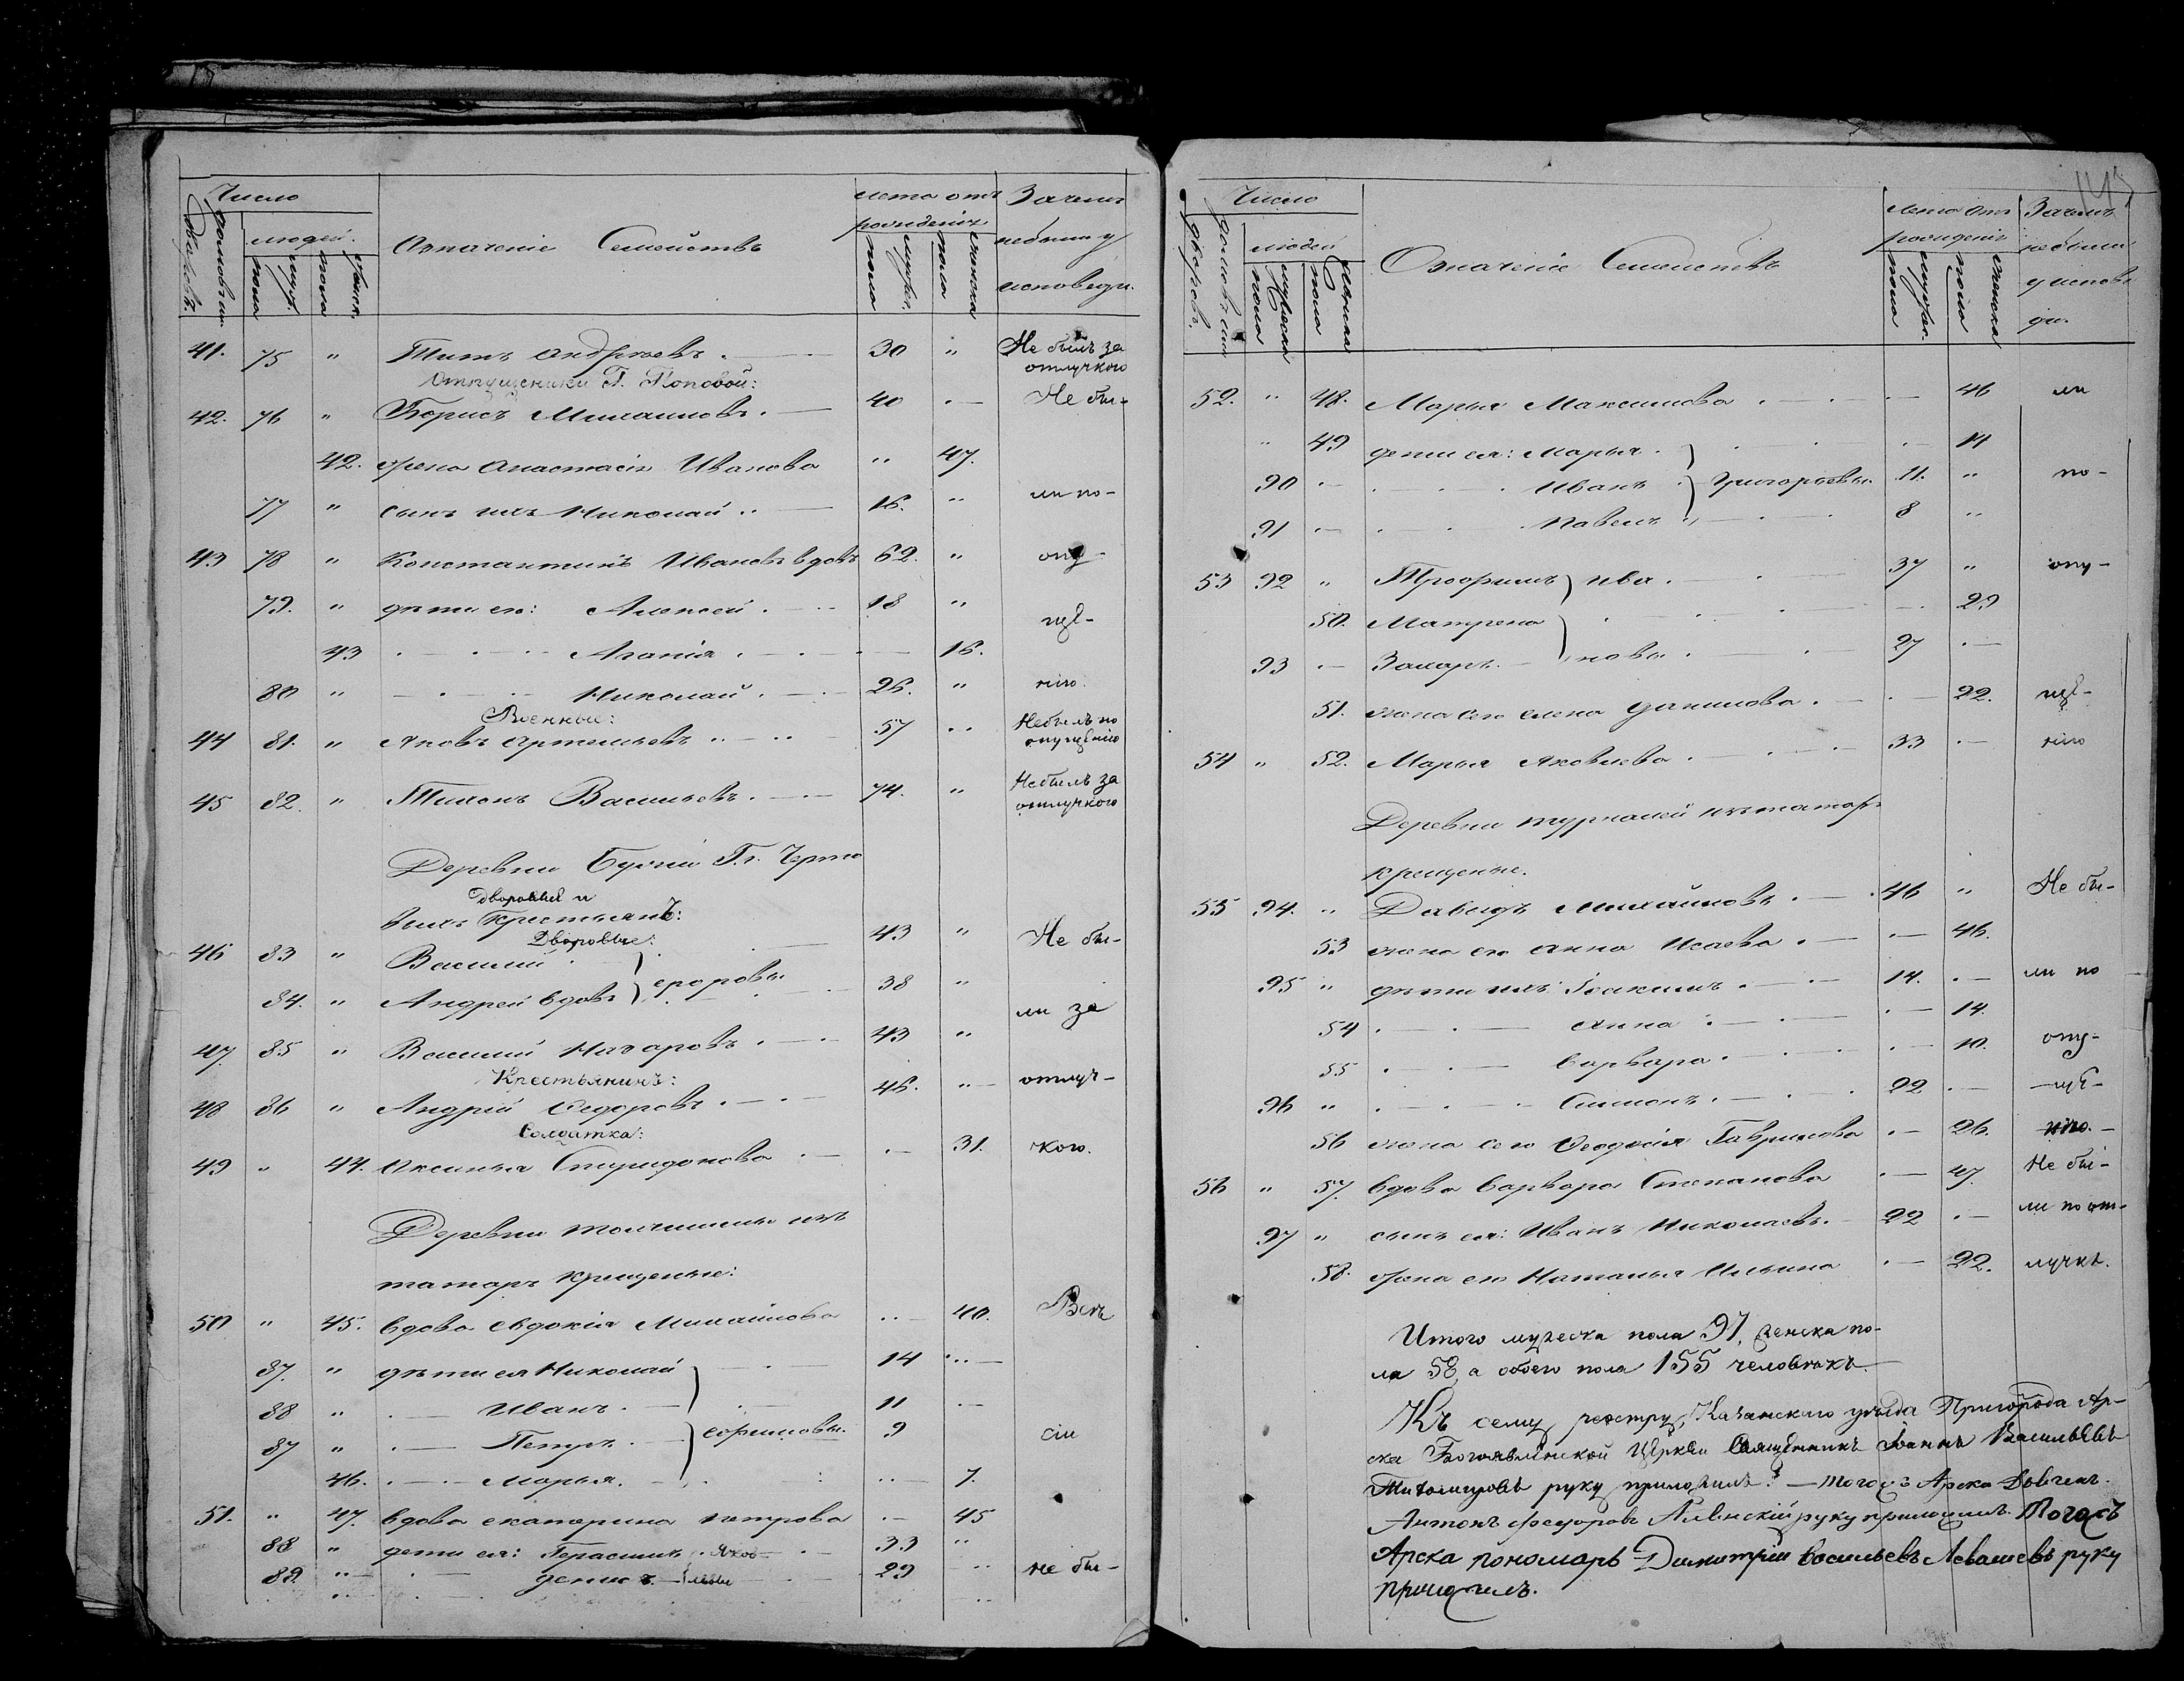 Число
Дворовъ.
домовъ
людей.
муж.
пола
женск.
пола
Означеніе Семействъ
Лета отъ
рожденія
мужес.
пола
женска
пола
Зачемъ
небыли у
исповеди.
41. 75 " Титъ Андреевъ. 30 " Не былъ за
отлучкою
Отпущеники Г. Поповой:
42. 76 " Борисъ Михаиловъ. 40 Не бы-
42. жена Анастасія Иванова " 47.
77 " сынъ ихъ Николай 16. " ли по-
43 78 " Константинъ Ивановъ вдовъ 62. " опу-
79. " дети его: Алексей 18 "
ще-
43 Агапія 16.
80 " Николай 26. " нію.
Военные:
44 81. " Яковъ Артемьевъ 57 " Небылъ по
опущенію
45 82. " Тихонъ Васильевъ. 74. " Небылъ за
отлучкою
Деревни
Дворовые и
Крестьянъ:
Дворовые:
46 83 " Василий 43 " Не бы-
84. " Андрей вдовъ 38 "
ли за
47. 85 " Василий Назаровъ. 43 "
Крестьянинъ:
48 86 " Андрей Федоровъ 46. " отлуч-
Солдатка:
49 " 44. Аксинья Спиридонова 31. кою.
Деревни изъ
татаръ крещеные:
50 " 45. вдова Евдокія Михаилова 40. Всѣ
87. " дети ея Николай 14
88 " Иванъ 11
87 " Петръ Ефимовы. 9 сіи
46. Марья. 7.
51. " 47. вдова Екатерина Петрова 45
88 " дети ея: Герасимъ 33 "
89. " Денис 29 не бы-
Число
дворовъ.
людей
мужеска
пола
женска
пола
Означеніе Семействъ
Лета отъ
рожденія
мужес.
пола
женска
пола
Зачемъ
небыли
у испове
ди.
52. " 48. Марья Максимова 46 ли
" 49 дети ея: Марья 14
90 Иванъ Григорьевы. 11. " по-
91 Павелъ 8 "
53 92 " Трофимъ Ива 37 " опу-
50. Матрена 29
93 Захаръ новы 27
51. жена его Елена Данилова. 22. ще-
54 " 52. Марья Яковлева 33 нію
Деревни изъ татаръ
крещеные.
55 94. " Давыдъ Михайловъ. 46 " Не бы-
53 жена его Анна Исаева 46.
95 " дети ихъ: Іоакимъ 14. ли по
54 Анна 14.
55 Варвара 10. опу-
96 " Симионъ 22 ще-
56 жена его Феодосія Гаврилова 26. нію.
56 " 57. вдова Варвара Степанова 47. Не бы-
97 " сынъ ея: Иванъ Николаевъ. 22 ли по от-
58. жена его Наталья Ильина 22. лучкѣ.
Итого мужеска пола 97, женска по-
ла 58, а обоего пола 155 человѣкъ
Къ сему реэстру Казанскаго уѣзда Пригорода Ар-
ска Богоявленской Церкви Священникъ Іоаннъ Васильевъ
руку приложилъ. Тогожъ Арска
Антонъ Федоровъ руку приложилъ. Тогожъ
Арска пономарь Димитрій Васильевъ Левашевъ руку
приложилъ.